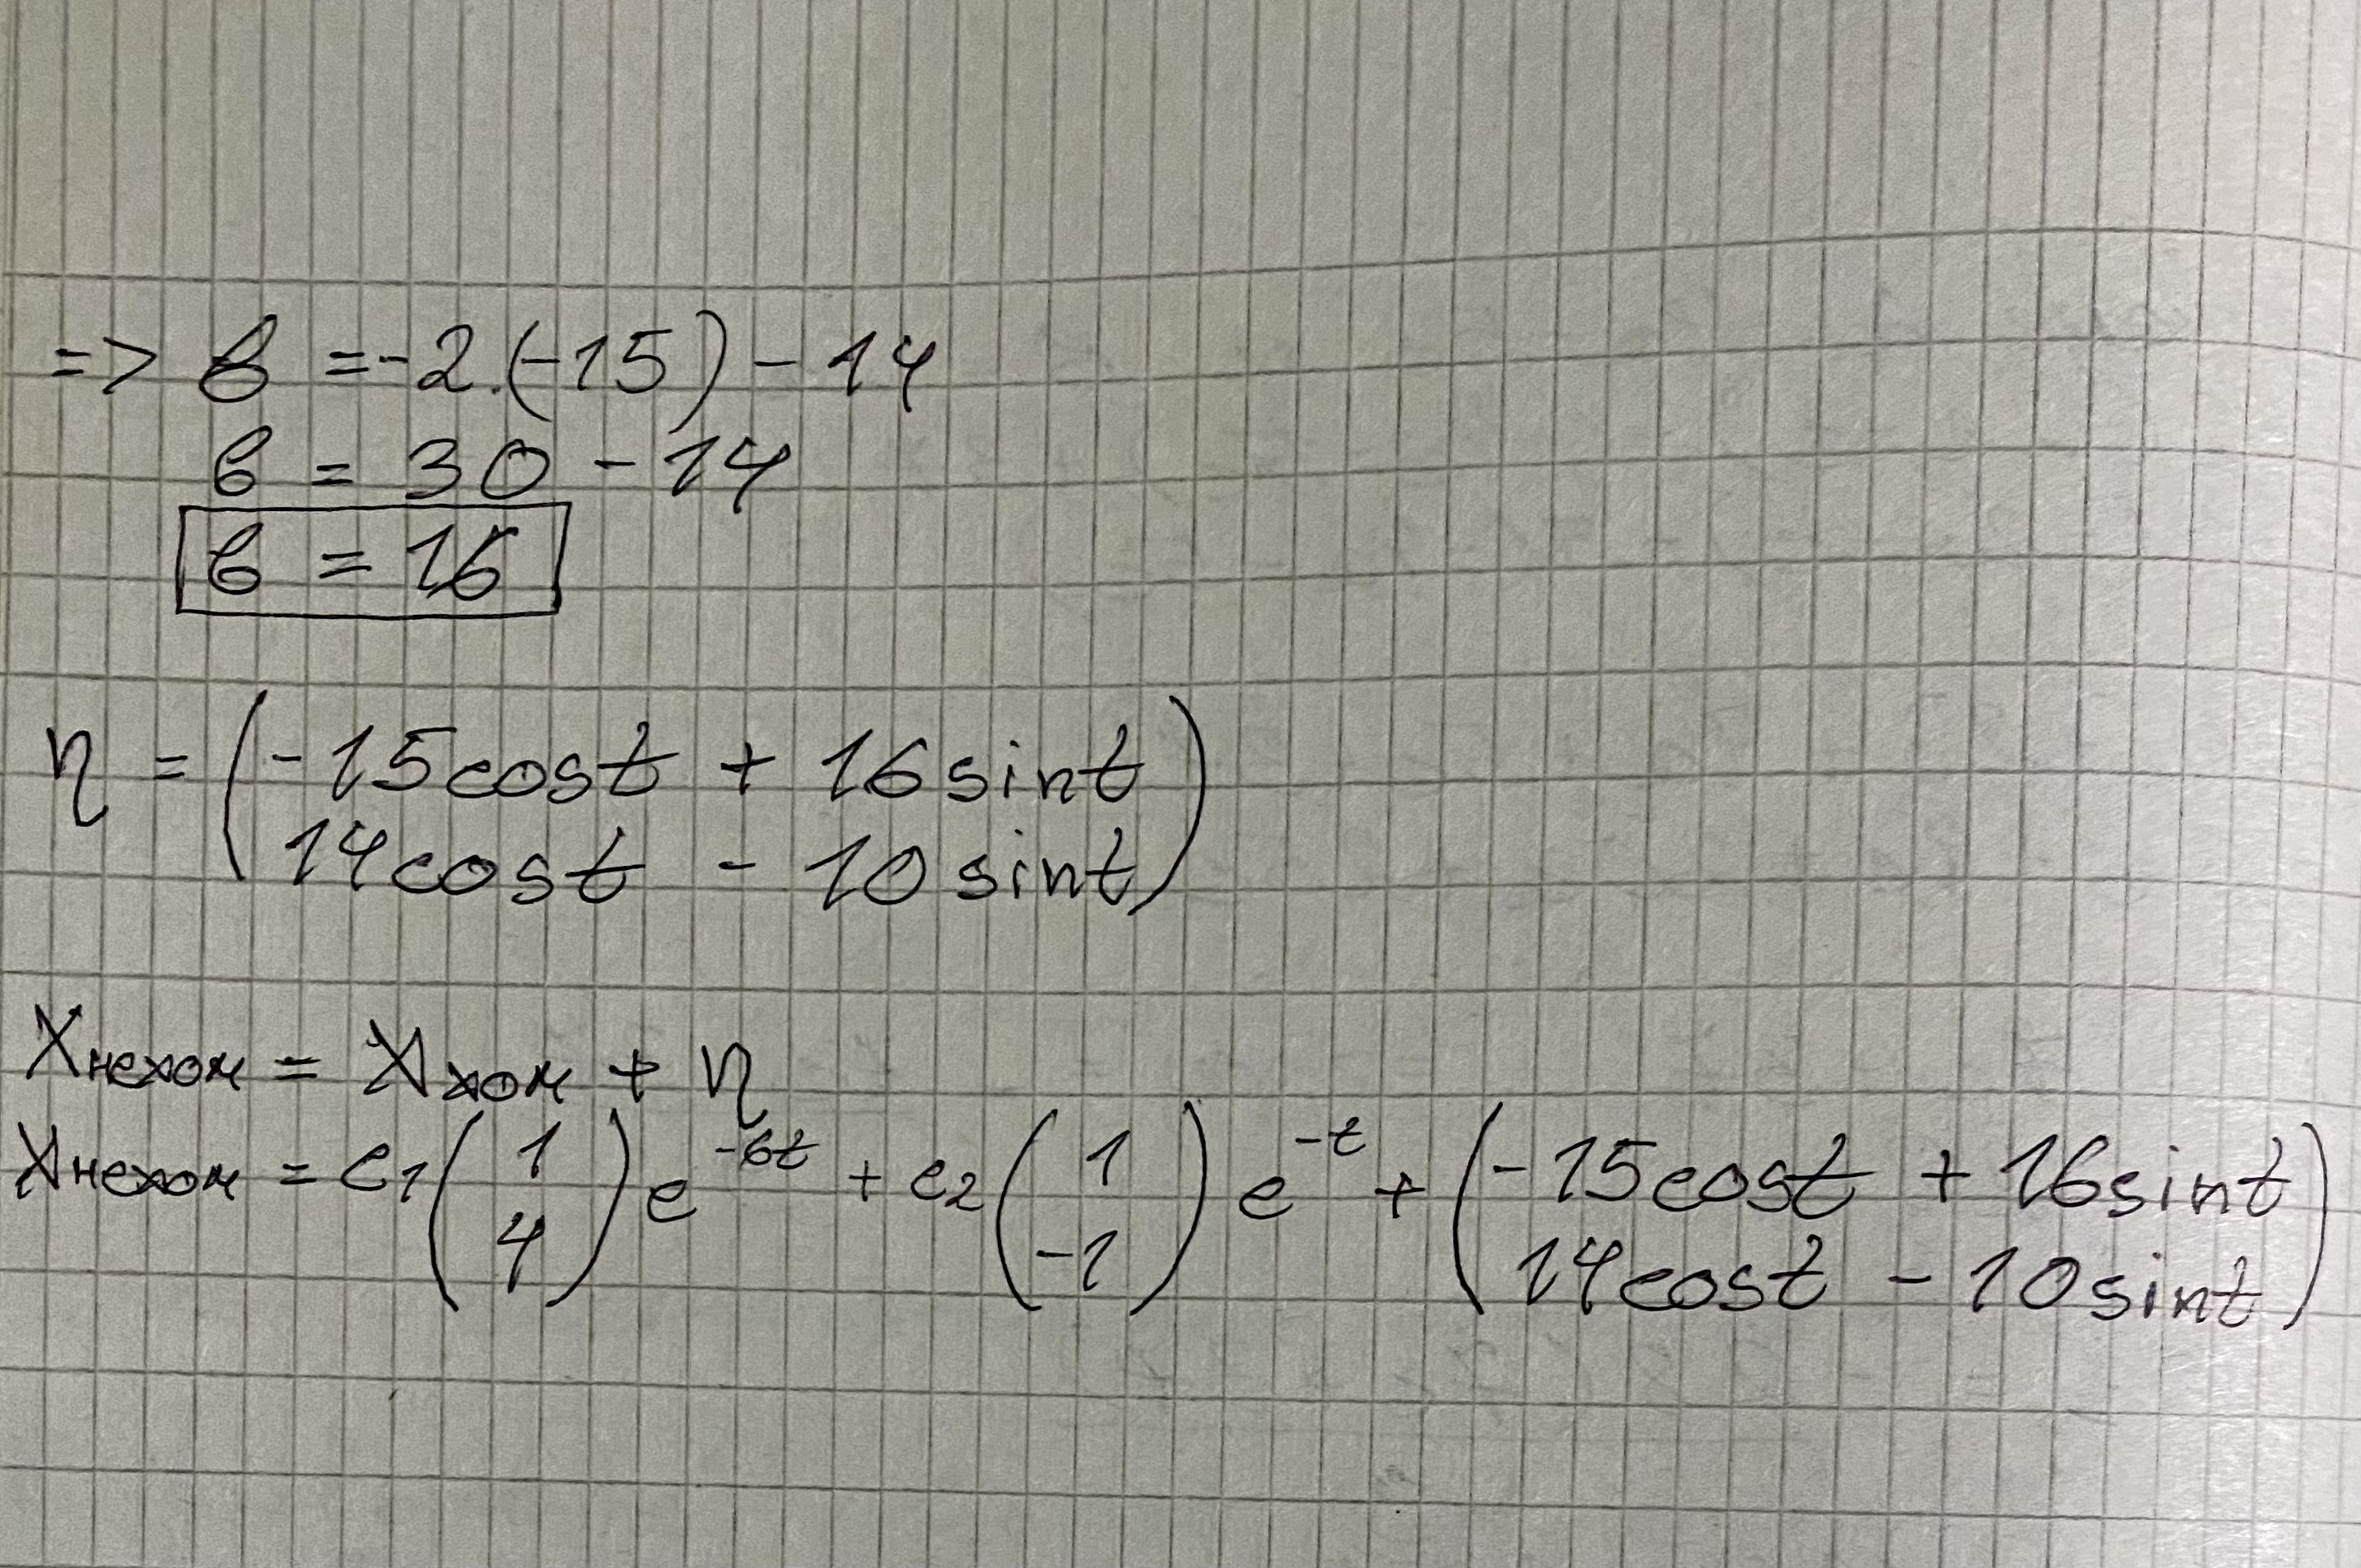 => в = -2.(-15) - 14
в = 30 - 14
в = 16
η = (-15cost + 16sint
14cost - 10sint)
Xнехом = Xхом + η
Xнехом = c₁(1 4)e^-6t + c₂(1 -1)e^-t + (-15cost + 16sint
14cost - 10sint)